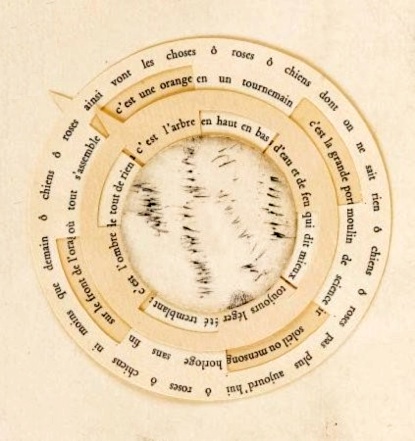 ainsi vont les choses ô roses ô chiens dont on ne sait rien ô chiens ô roses pas plus aujourd'hui ô roses ô chiens ni moins que demain ô chiens ô roses
c'est une orange en un tournemain c'est la grande port moulin de science ir soleil ou mensong horloge sans fin sur le front de l'oraj où tout s'assemble
c'est l'arbre en haut en bas d'eau et de feu qui dit mieux toujours léger été tremblant c'est l'ombre le tout de rien